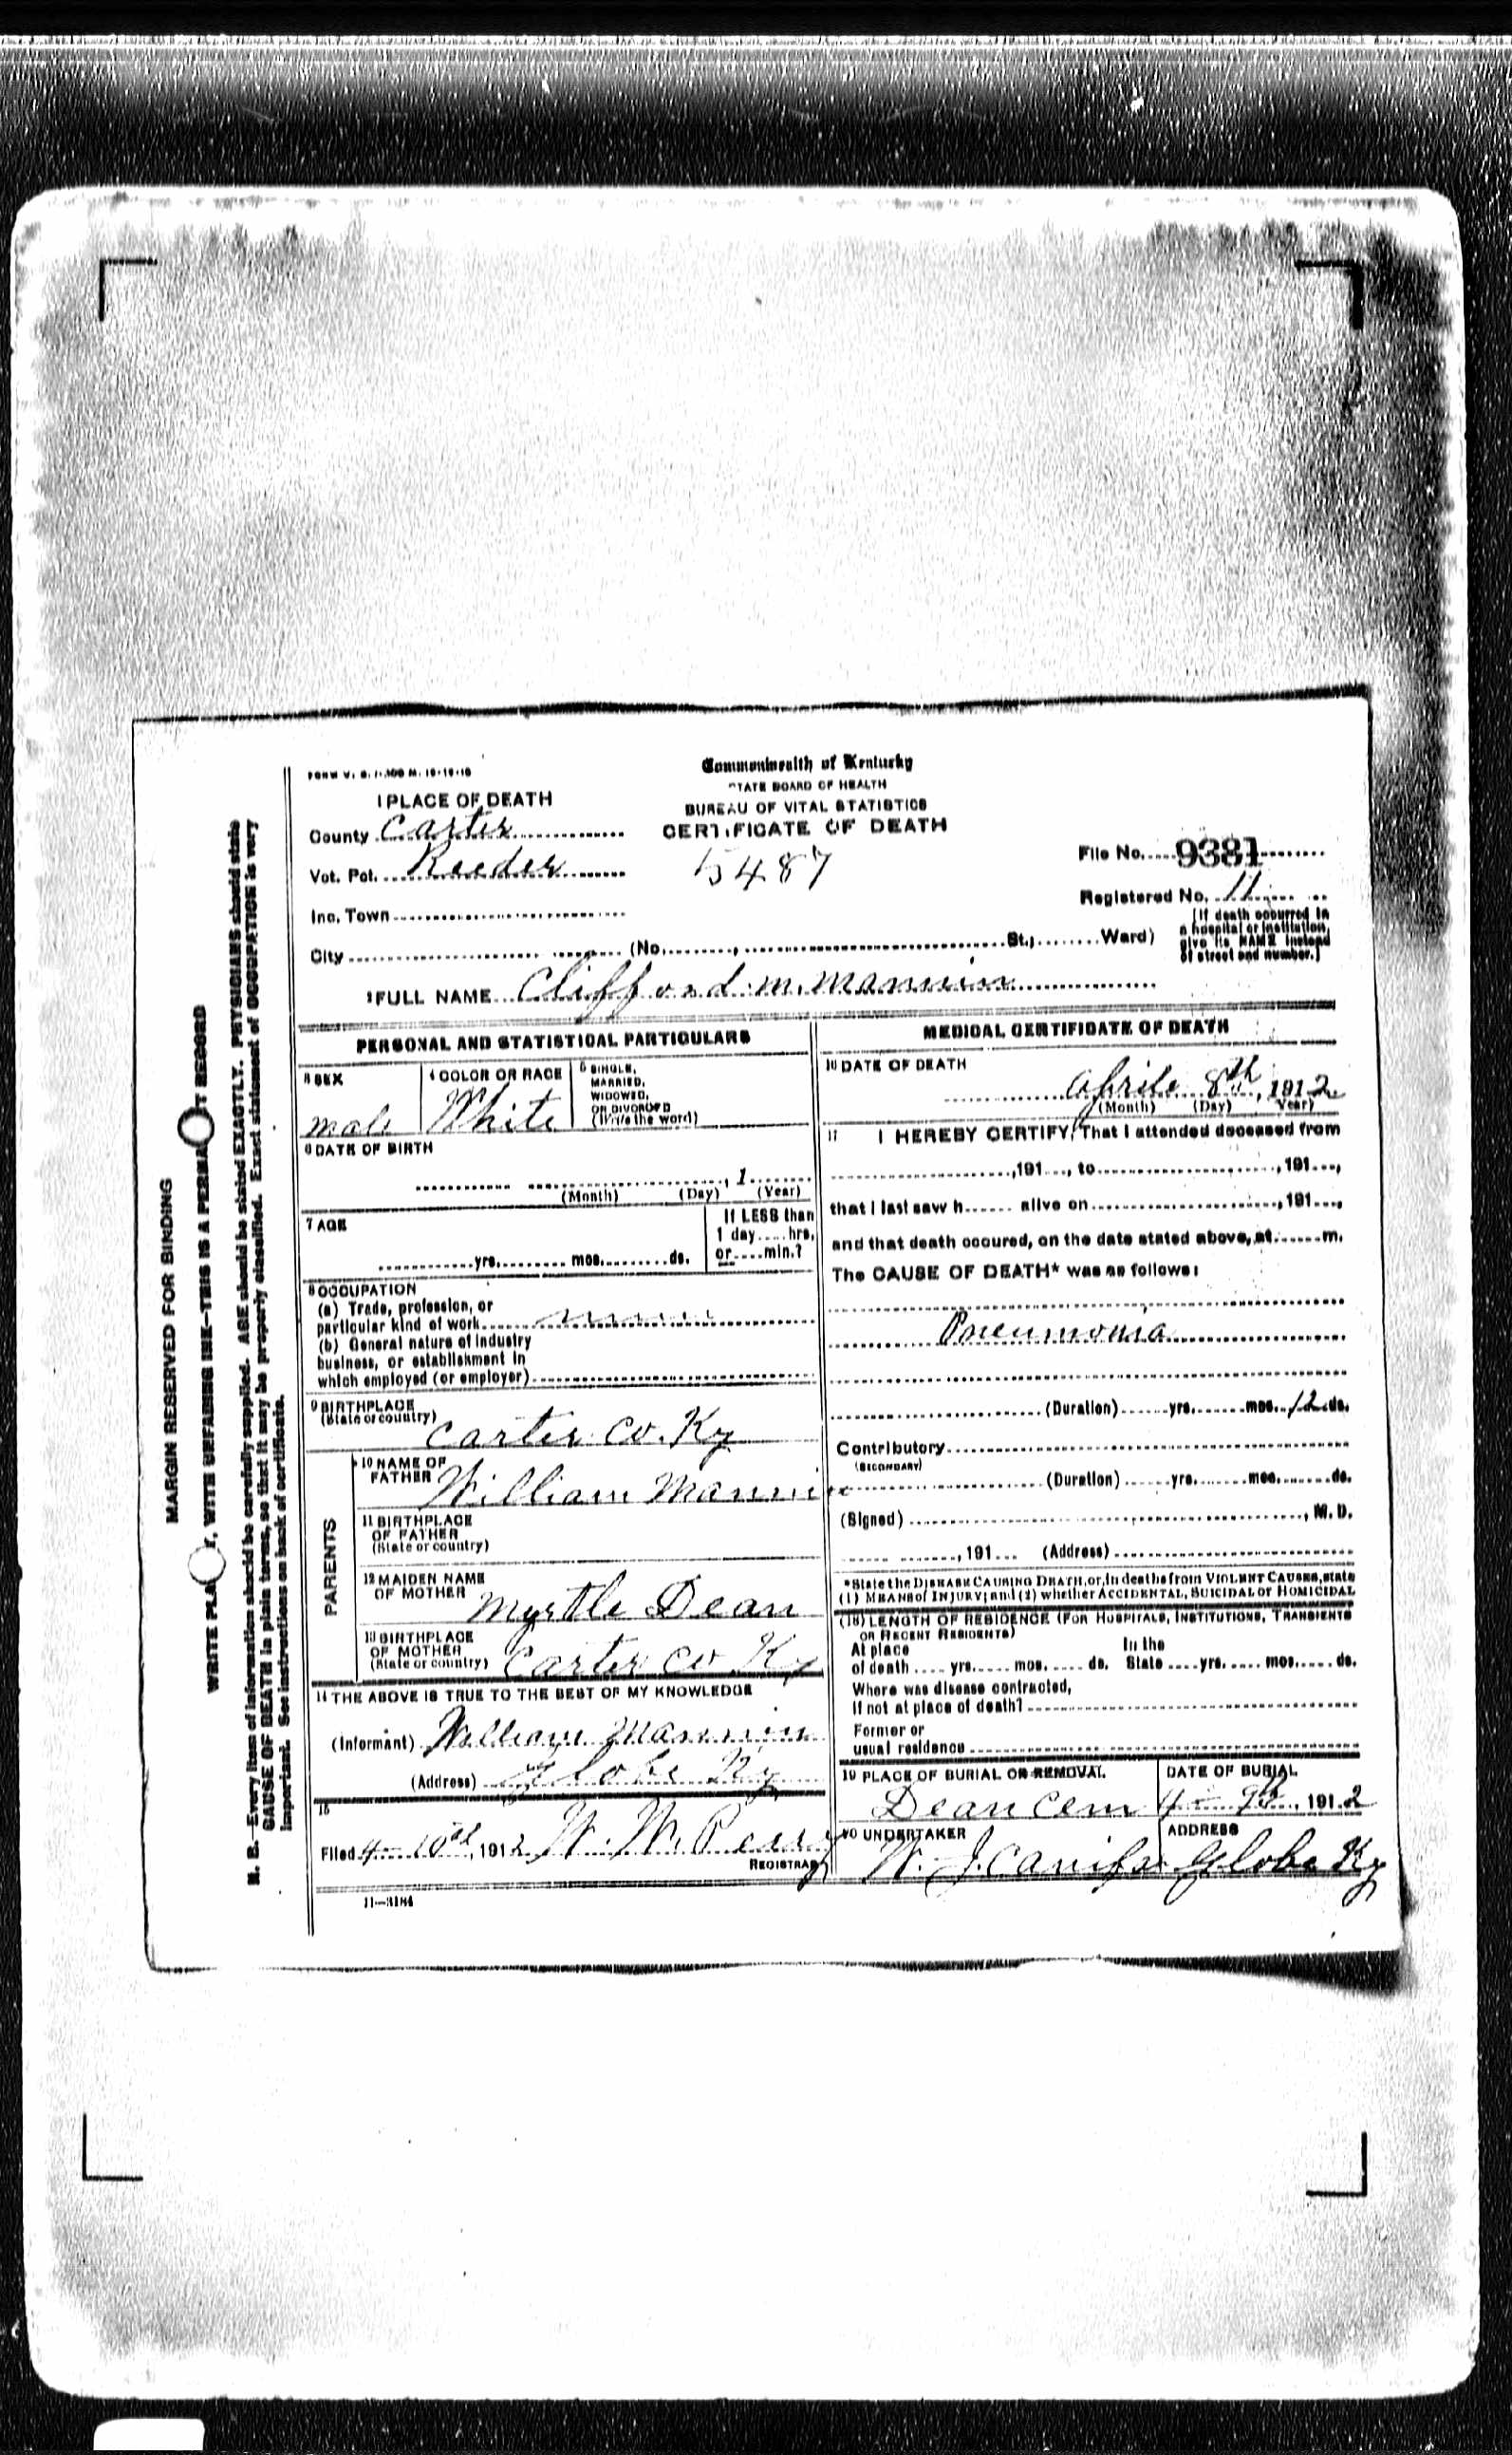 MARGIN RESERVED FOR BINDING
WRITE PLA Y, WITH UNFADING INK—THIS IS A PERMA T RECORD
N. B.—Every item of information should be carefully supplied. AGE should be stated EXACTLY. PHYSICIANS should state
CAUSE OF DEATH in plain terms, so that it may be properly classified. Exact statement of OCCUPATION is very
important. See instructions on back of certificate.
Commonwealth of Kentucky
STATE BOARD OF HEALTH
BUREAU OF VITAL STATISTICS
CERTIFICATE OF DEATH
1 PLACE OF DEATH
County Carter
Vot. Pct. Reeder
5487
File No. 9381
Registered No. 11
Inc. Town
City (No. , St.; Ward)
(If death occurred in
a hospital or institution,
give its NAME instead
of street and number.)
2 FULL NAME Clifford. m. mannin
PERSONAL AND STATISTICAL PARTICULARS
3 SEX
male
4 COLOR OR RACE
White
5 SINGLE,
MARRIED,
WIDOWED,
OR DIVORCED
(Write the word)
6 DATE OF BIRTH
, 1
(Month) (Day) (Year)
7 AGE
yrs. mos. ds.
If LESS than
1 day hrs.
or min.?
8 OCCUPATION
(a) Trade, profession, or
particular kind of work
(b) General nature of industry
business, or establishment in
which employed (or employer)
9 BIRTHPLACE
(State or country)
Carter Co. Ky
PARENTS
10 NAME OF
FATHER
William Mannin
11 BIRTHPLACE
OF FATHER
(State or country)
12 MAIDEN NAME
OF MOTHER
Myrtle Dean
13 BIRTHPLACE
OF MOTHER
(State or country)
Carter Co. Ky
14 THE ABOVE IS TRUE TO THE BEST OF MY KNOWLEDGE
(Informant) William Mannin
(Address) Globe Ky
15
Filed 4- 10th, 1912 W. M. Perry
REGISTRAR
11—3184
MEDICAL CERTIFICATE OF DEATH
16 DATE OF DEATH
Aprile 8th, 1912
(Month) (Day) Year)
17 I HEREBY CERTIFY, That I attended deceased from
,191 , to ,191 ,
that I last saw h alive on ,191 ,
and that death occured, on the date stated above, at m.
The CAUSE OF DEATH* was as follows:
Pneumonia
(Duration) yrs. mos. 12 ds.
Contributory
(SECONDARY)
(Duration) yrs. mos. ds.
(Signed) , M. D.
, 191 (Address)
*State the DISEASE CAUSING DEATH, or, in deaths from VIOLENT CAUSES, state
(1) MEANS of INJURY; and (2) whether ACCIDENTAL, SUICIDAL or HOMICIDAL
(18) LENGTH OF RESIDENCE (FOR HOSPITALS, INSTITUTIONS, TRANSIENTS
OR RECENT RESIDENTS)
At place In the
of death yrs. mos. ds. State yrs. mos. ds.
Where was disease contracted,
If not at place of death?
Former or
usual residence
19 PLACE OF BURIAL OR REMOVAL
Dean Cem
DATE OF BURIAL
4- 9th, 1912
20 UNDERTAKER
W. J.
ADDRESS
Globe Ky